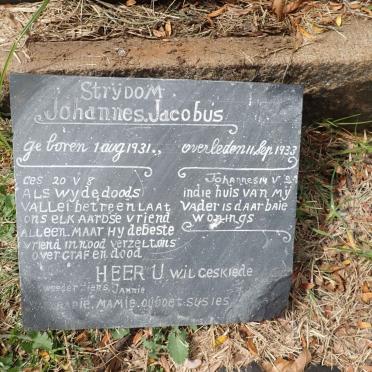 Strydom
Johannes Jacobus
geboren 1 aug 1931., overleden 11 Sep 1933
Ges 20 V 8
Als wy de doods
vallei betreen laat
ons elk aardse vriend
alleen. Maar Hy de beste
vriend in nood verzelt ons
over graf en dood
Johannes 14 V
in die huis van my
Vader is daar baie
wonings
HEER U wil geskiede
Mamie. ouboet. Susies